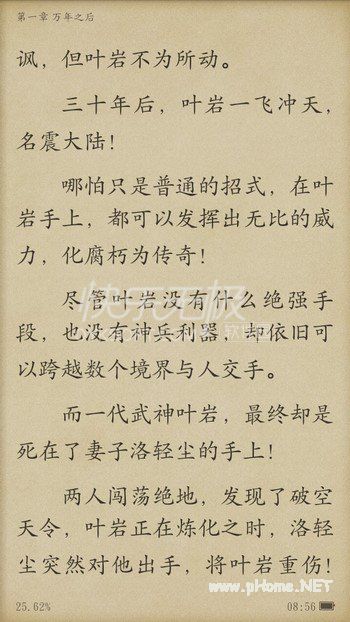 第一章 万年之后
讽，但叶岩不为所动。
三十年后，叶岩一飞冲天，
名震大陆！
哪怕只是普通的招式，在叶
岩手上，都可以发挥出无比的威
力，化腐朽为传奇！
尽管叶岩没有什么绝强手
段，也没有神兵利器，却依旧可
以跨越数个境界与人交手。
而一代武神叶岩，最终却是
死在了妻子洛轻尘的手上！
两人闯荡绝地，发现了破空
天令，叶岩正在炼化之时，洛轻
尘突然对他出手，将叶岩重伤！
www.pHome.NET
25.62%
08:56